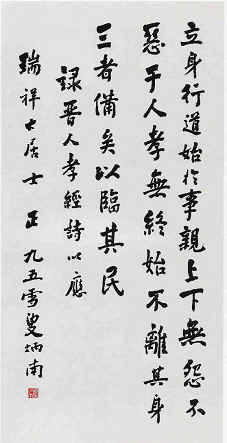 立身行道始於事親上下無怨不
惡于人孝無終始不離其身
三者備矣以臨其民
録晉人孝經詩以應
瑞祥大居士正九五雪叟炳南